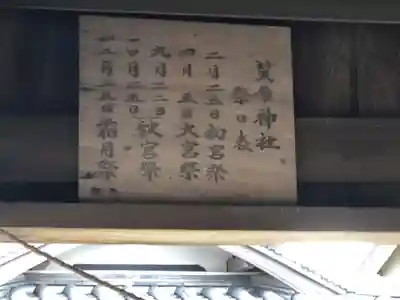 神社
祭日表
二月二五日初宮祭
四月 五日大宮祭
九月二二日秋宮祭
一〇月二五日
一二月二五日霜月祭